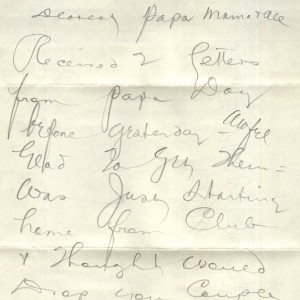 Dearest Papa Mama & all
Received 2 letters
from Papa Day
before yesterday - Awful
Glad to Get Them =
Was Just Starting
home from Club
& Thought would
Drop you Couple